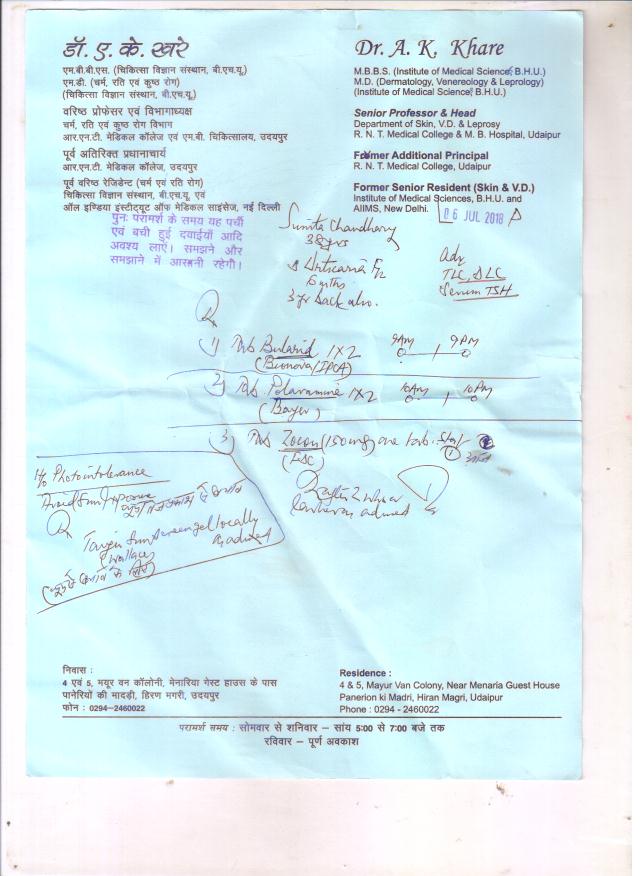 डॉ. ए. के. खरे
एम.बी.बी.एस. (चिकित्सा विज्ञान संस्थान, बी.एच.यू.)
एम.डी. (चर्म, रति एवं कुष्ठ रोग)
(चिकित्सा विज्ञान संस्थान, बी.एच.यू.)
वरिष्ठ प्रोफेसर एवं विभागाध्यक्ष
चर्म, रति एवं कुष्ठ रोग विभाग
आर.एन.टी. मेडिकल कॉलेज एवं एम.बी. चिकित्सालय, उदयपुर
पूर्व अतिरिक्त प्रधानाचार्य
आर.एन.टी. मेडिकल कॉलेज, उदयपुर
पूर्व वरिष्ठ रेजिडेन्ट (चर्म एवं रति रोग)
चिकित्सा विज्ञान संस्थान, बी.एच.यू. एवं
ऑल इण्डिया इंस्टीट्यूट ऑफ मेडिकल साइंसेज, नई दिल्ली
Dr. A. K. Khare
M.B.B.S. (Institute of Medical Science, B.H.U.)
M.D. (Dermatology, Venereology & Leprology)
(Institute of Medical Science, B.H.U.)
Senior Professor & Head
Department of Skin, V.D. & Leprosy
R. N. T. Medical College & M. B. Hospital, Udaipur
Former Additional Principal
R. N. T. Medical College, Udaipur
Former Senior Resident (Skin & V.D.)
Institute of Medical Sciences, B.H.U. and
AIIMS, New Delhi.
06 JUL 2018
पुनः परामर्श के समय यह पर्ची
एवं बची हुई दवाईयाँ आदि
अवश्य लाऐं। समझने और
समझाने में आसानी रहेगी।
Sunita Chaudhary
38 yrs
Urticaria
6 mths
3 yr back also.
Adv
TLC, DLC
Serum TSH
1) Tab 1X2 9AM 9PM
(Bionova/IPCA)
2) Tab Polaramine 1X2 10AM 10PM
(Bayer)
3) Tab Zocon (150mg) one tab. Stat
(FDC)
H/o Photointolerance
Avoid Sun Exposure
Sunscreen gel locally
(Wallace) as advised
निवास :
4 एवं 5, मयूर वन कॉलोनी, मेनारिया गेस्ट हाउस के पास
पानेरियों की मादड़ी, हिरण मगरी, उदयपुर
फोन : 0294-2460022
Residence :
4 & 5, Mayur Van Colony, Near Menaria Guest House
Panerion ki Madri, Hiran Magri, Udaipur
Phone : 0294 - 2460022
परामर्श समय : सोमवार से शनिवार – सांय 5:00 से 7:00 बजे तक
रविवार – पूर्ण अवकाश